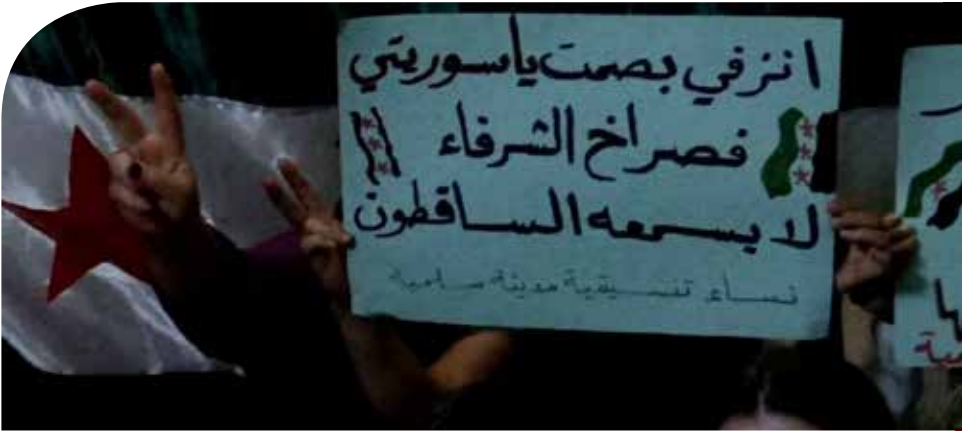 انزفي بصمت ياسوريتي
فصراخ الشرفاء
لا يسمعه الساقطون
نساء تنسيقية مدينة سلمية